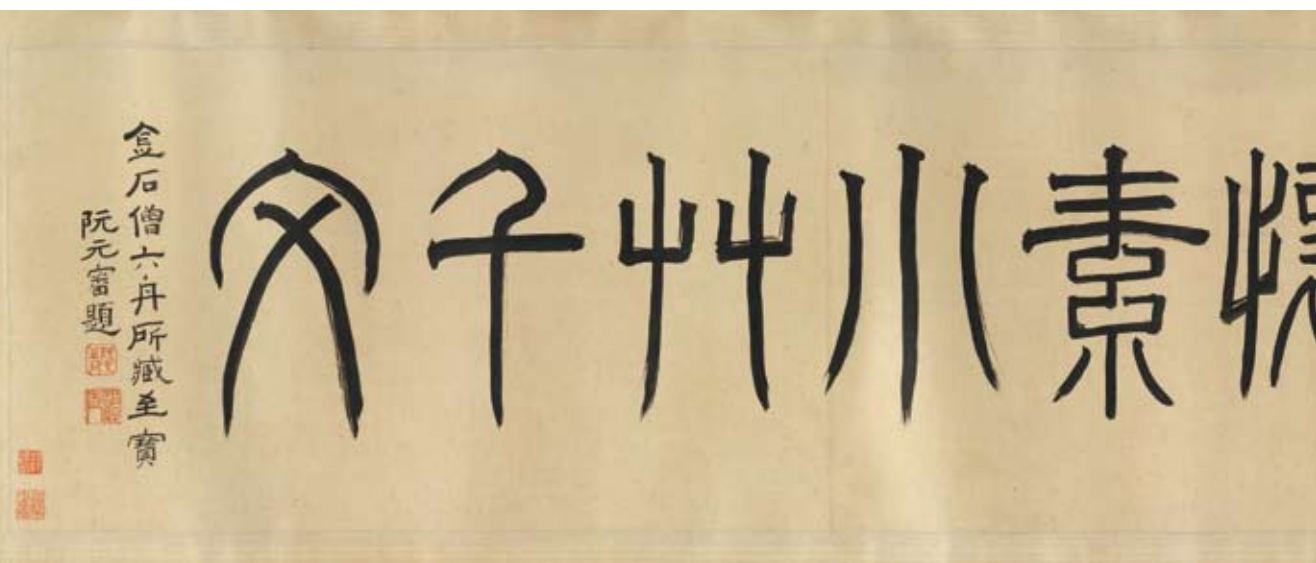 懷素小艸千文
金石僧六舟所藏至寶
阮元審題